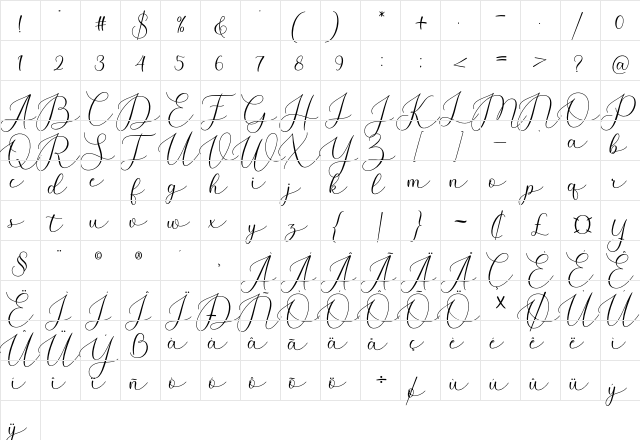 ! " # $ % & ' ( ) * + , - . / 0
1 2 3 4 5 6 7 8 9 : ; < = > ? @
A B C D E F G H I J K L M N O P
Q R S T U V W X Y Z [ ] — ` a b
c d e f g h i j k l m n o p q r
s t u v w x y z { | } ~ ₵ £ ¤ Ỵ
§ ¨ © ® À Á Â Ã Ä Å Ç È É Ê
Ë Ì Í Î Ï Ð Ñ Ò Ó Ô Õ Ö × Ø Ù Ú
Û Ü Ý ß à á â ã ä å ç è é ê ë ì
í î ï ñ ò ó ô õ ö ÷ ø ù ú û ü ý
ÿ